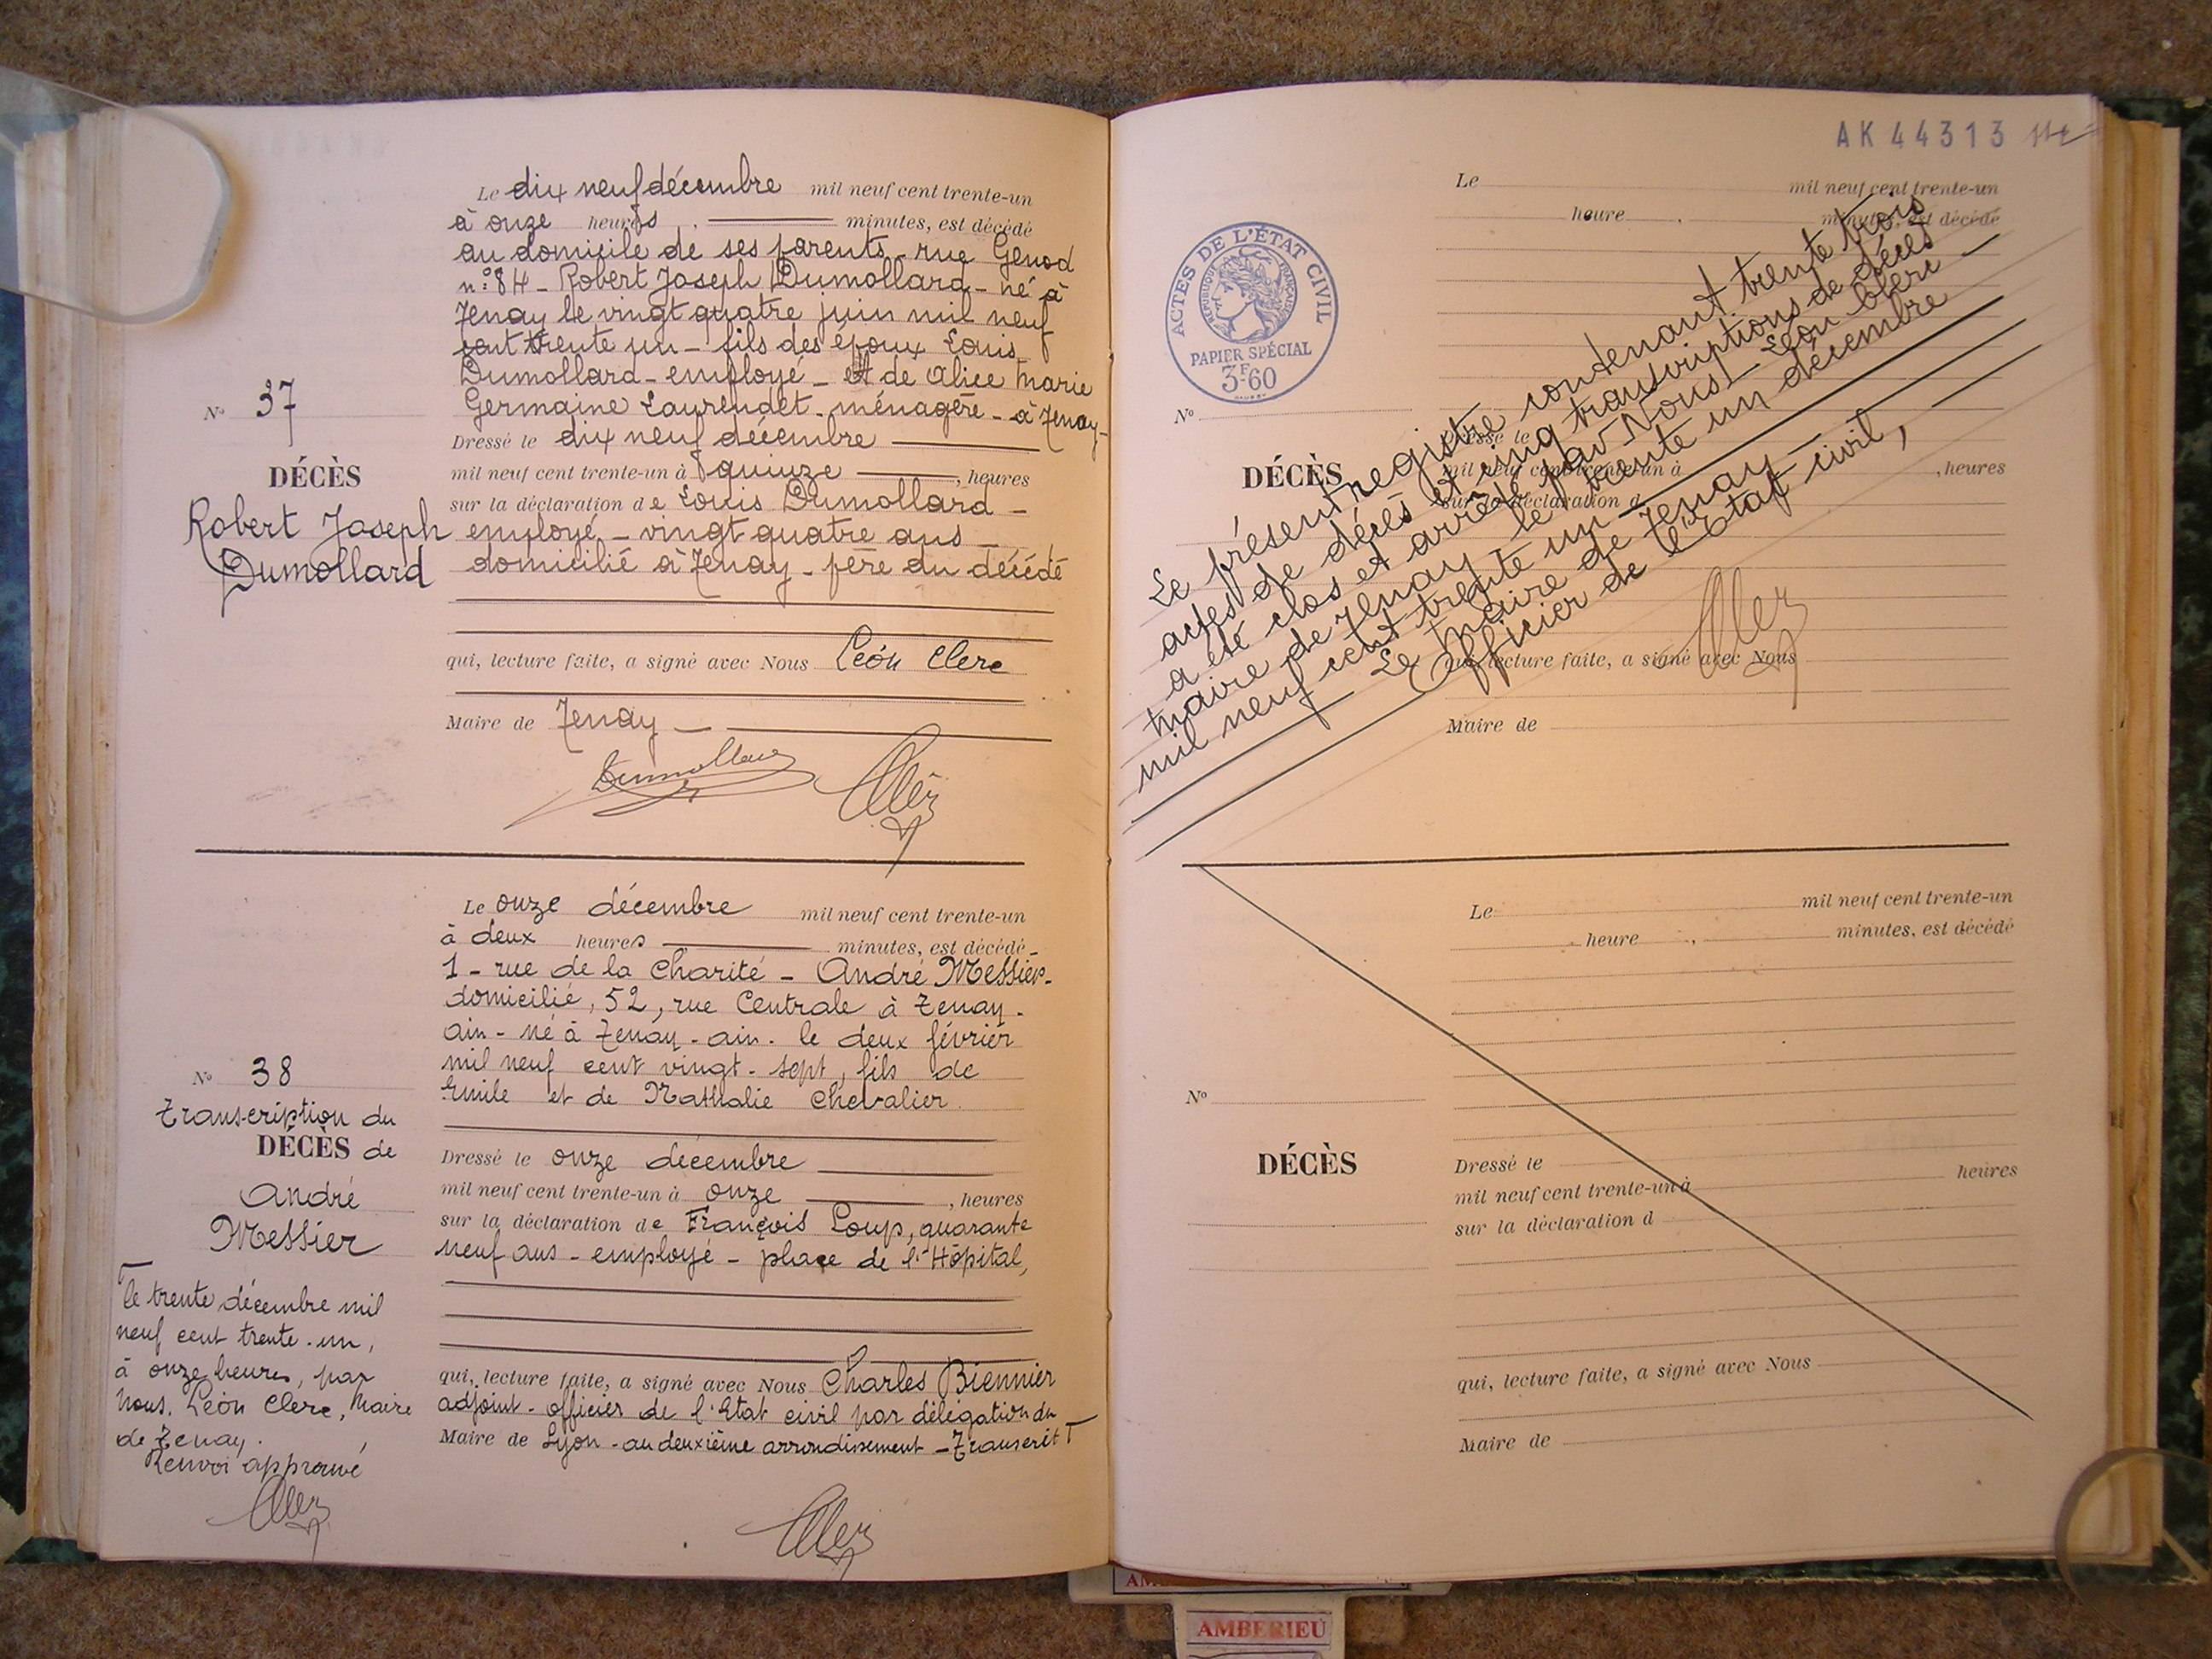 Le dix neuf décembre mil neuf cent trente-un
à onze heures, minutes, est décédé
au domicile de ses parents - rue Genod
n° 84 - Robert Joseph Dumollard - né à
Tenay le vingt quatre juin mil neuf
cent trente un - fils des époux Louis
Dumollard - employé - et de Alice Marie
Germaine Laurendet - ménagère - à Tenay -
N° 37
DÉCÈS
Robert Joseph
Dumollard
Dressé le dix neuf décembre
mil neuf cent trente-un à quinze, heures
sur la déclaration de Louis Dumollard -
employé - vingt quatre ans -
domicilié à Tenay - père du décédé
qui, lecture faite, a signé avec Nous Léon Clerc
Maire de Tenay -
Dumollard Clerc
Le onze décembre mil neuf cent trente-un
à deux heures minutes, est décédé -
1 - rue de la Charité - André Messier -
domicilié, 52, rue Centrale à Tenay -
ain - né à Tenay - ain - le deux février
mil neuf cent vingt - sept, fils de
Emile et de Nathalie Chevalier
N° 38
Transcription du
DÉCÈS de
André
Messier
Dressé le onze décembre
mil neuf cent trente-un à onze, heures
sur la déclaration de François Loup, quarante
neuf ans - employé - place de l'Hôpital,
qui, lecture faite, a signé avec Nous Charles Biennier
adjoint - officier de l'Etat civil par délégation du
Maire de Lyon - au deuxième arrondissement - Transcrit T
T le trente décembre mil
neuf cent trente - un,
à onze heures, par
Nous. Léon Clerc, Maire
de Tenay.
Renvoi approuvé
Clerc
Clerc
AK 44313
ACTES DE L'ÉTAT CIVIL
RÉPUBLIQUE FRANÇAISE
PAPIER SPÉCIAL
3F60
Le mil neuf cent trente-un
heure, minutes, est décédé
N°
DÉCÈS
Dressé le
mil neuf cent trente-un à, heures
sur la déclaration d
qui, lecture faite, a signé avec Nous
Maire de
Le présent registre contenant trente trois
actes de décès et cinq transcriptions de décès
a été clos et arrêté par Nous - Léon Clerc -
maire de Tenay le trente un décembre
mil neuf cent trente un -
Le Maire de Tenay -
Officier de l'Etat civil,
Clerc
Le mil neuf cent trente-un
heure, minutes, est décédé
N°
DÉCÈS
Dressé le
mil neuf cent trente-un à heures
sur la déclaration d
qui, lecture faite, a signé avec Nous
Maire de
AMBERIEU